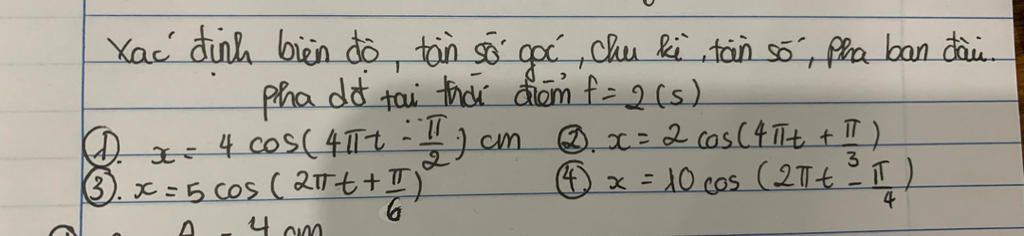 Xác định biên độ, tần số góc, chu kì, tần số, pha ban đầu.
pha dđ tại thời điểm t = 2 (s)
①. x = 4 cos(4πt - π/2) cm ②. x = 2 cos(4πt + π/3)
③. x = 5 cos (2πt + π/6) ④ x = 10 cos (2πt - π/4)
A = 4 cm